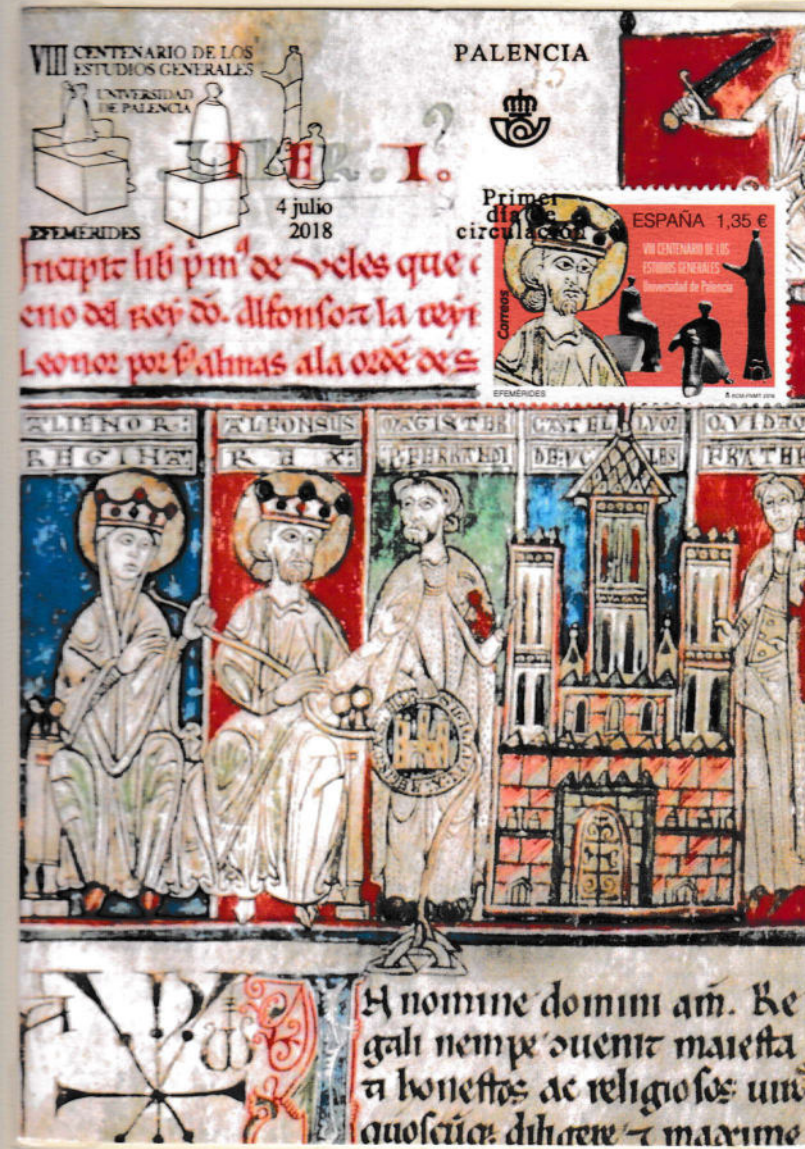 VIII CENTENARIO DE LOS
ESTUDIOS GENERALES
UNIVERSIDAD
DE PALENCIA
EFEMÉRIDES
4 julio
2018
PALENCIA
Primer
día de
circulación
ESPAÑA 1,35 €
VIII CENTENARIO DE LOS
ESTUDIOS GENERALES
Universidad de Palencia
Correos
EFEMÉRIDES
RCM-FNMT 2018
LIBER . I.
Incipit lib p̄mꝰ de Veles que
eno del Rey dō. Alfonso ⁊ la reyn
Leonor por ſ almas ala ordē de S
ALIENOR:
REGINA
ALFONSUS
REX:
MAGISTER
P. FERRANDI
CASTELLVO
DE VCLES
FRATHE
N nomine domini am̄. Re
gali nempe ꝯuenit maiesta
ti honestos ac religiosos uiro
quoscūq; diligere ⁊ maxime